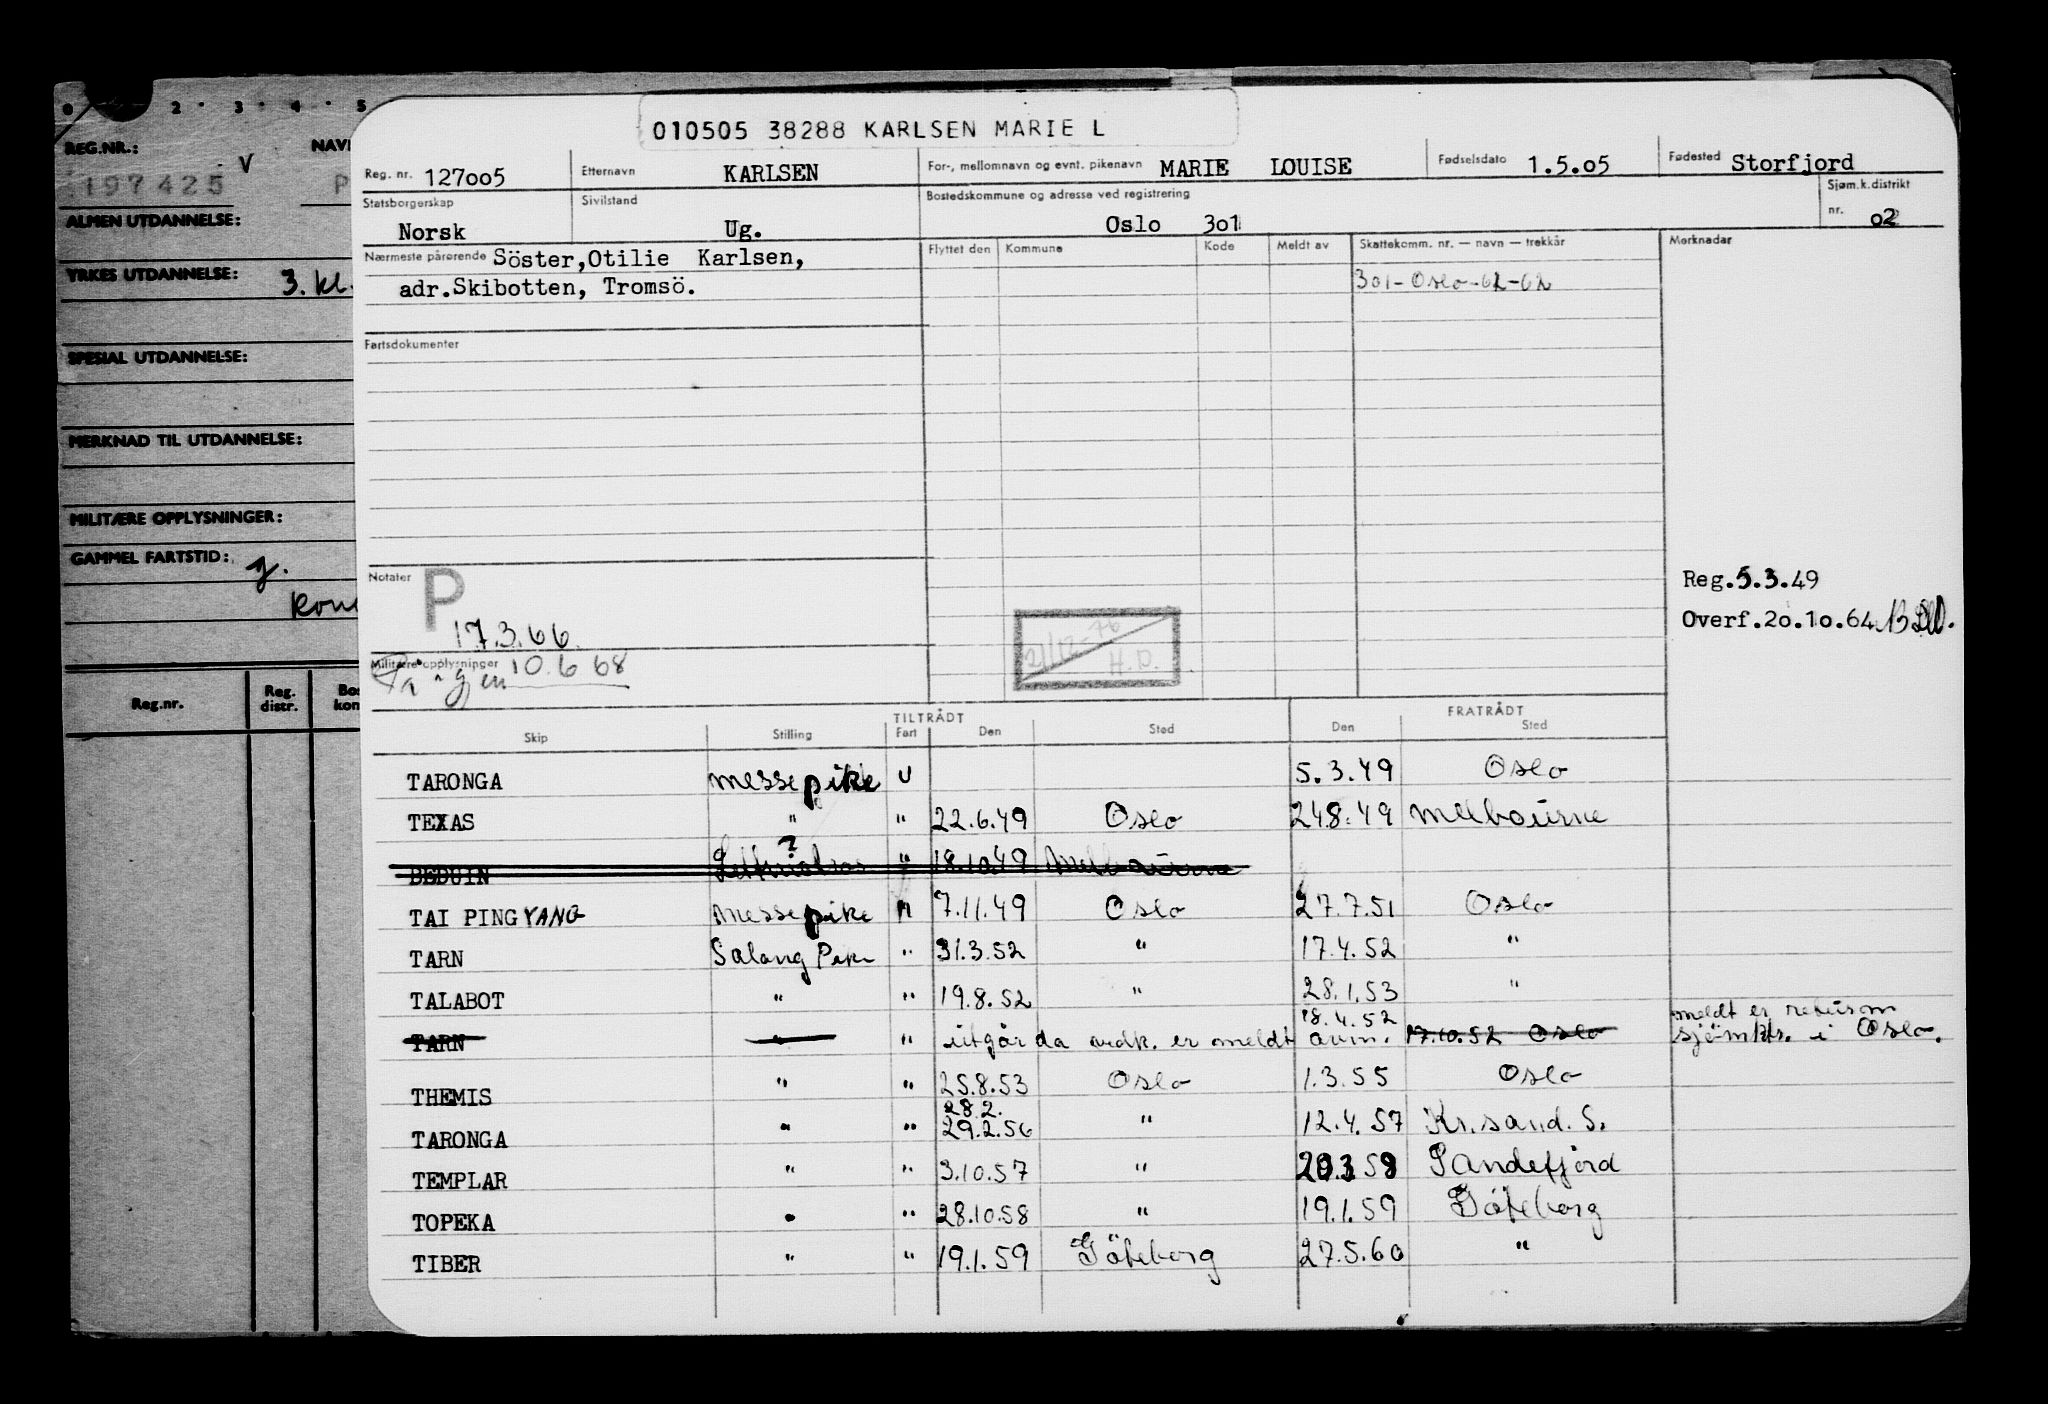 0 2 · 3 · 4 · 5
REG.NR.: V NAV
197425 P
ALMEN UTDANNELSE:
YRKES UTDANNELSE: 3. kl.
SPESIAL UTDANNELSE:
MERKNAD TIL UTDANNELSE:
MILITÆRE OPPLYSNINGER:
GAMMEL FARTSTID:
Reg.nr. Reg. distr. Bo kon
010505 38288 KARLSEN MARIE L
Reg. nr. 127oo5 Etternavn KARLSEN For-, mellomnavn og evnt. pikenavn MARIE LOUISE Fødselsdato 1.5.o5 Fødested Storfjord
Statsborgerskap Norsk Sivilstand Ug. Bostedskommune og adresse ved registrering Oslo 3o1 Sjøm.k.distrikt nr. o2
Nærmeste pårørende Söster,Otilie Karlsen,
adr.Skibotten, Tromsö.
Flyttet den Kommune Kode Meldt av Skattekomm. nr. — navn — trekkår Merknader
301-Oslo-62-62
Fartsdokumenter
Notater P
17.3.66.
Militære opplysninger 10.6 68
21/12-76
H.D.
Reg.5.3.49
Overf.2o.1o.64
TILTRÅDT FRATRÅDT
Skip Stilling Fart Den Sted Den Sted
TARONGA messepike U 5.3.49 Oslo
TEXAS " " 22.6.49 Oslo 24.8.49 Melbourne
BEDUIN ? " 18.10.49 Melbourne
TAI PING YANG messepike " 7.11.49 Oslo 27.7.51 Oslo
TARN Salong Pike " 31.3.52 " 17.4.52 "
TALABOT " " 19.8.52 " 28.1.53 "
TARN " " utgår da vedk. er meldt 18.4.52 avm. 17.10.52 Oslo meldt er retur om sjömktr. i Oslo.
THEMIS " " 25.8.53 Oslo 1.3.55 Oslo
TARONGA " " 28.2. 29.2.56 " 12.4.57 Kr.sand. S.
TEMPLAR " " 3.10.57 " Sandefjord
TOPEKA " " 28.10.58 " 19.1.59 Göteborg
TIBER " " 19.1.59 Göteborg 27.5.60 "